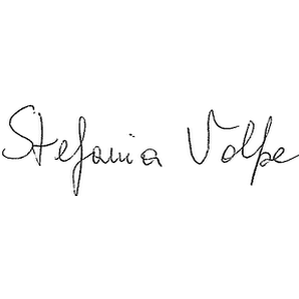 Stefania Volpe